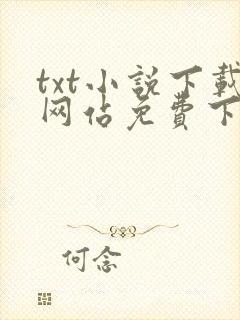 txt小說下載
网佔免費下
何念